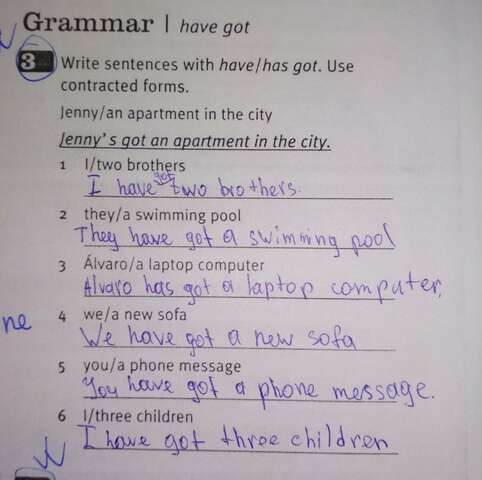 Grammar | have got
3 Write sentences with have/has got. Use
contracted forms.
Jenny/an apartment in the city
Jenny's got an apartment in the city.
1 I/two brothers
I have got two brothers.
2 they/a swimming pool
They have got a swimming pool
3 Álvaro/a laptop computer
Alvaro has got a laptop computer.
ne
4 we/a new sofa
We have got a new sofa
5 you/a phone message
You have got a phone message.
6 I/three children
I have got three children